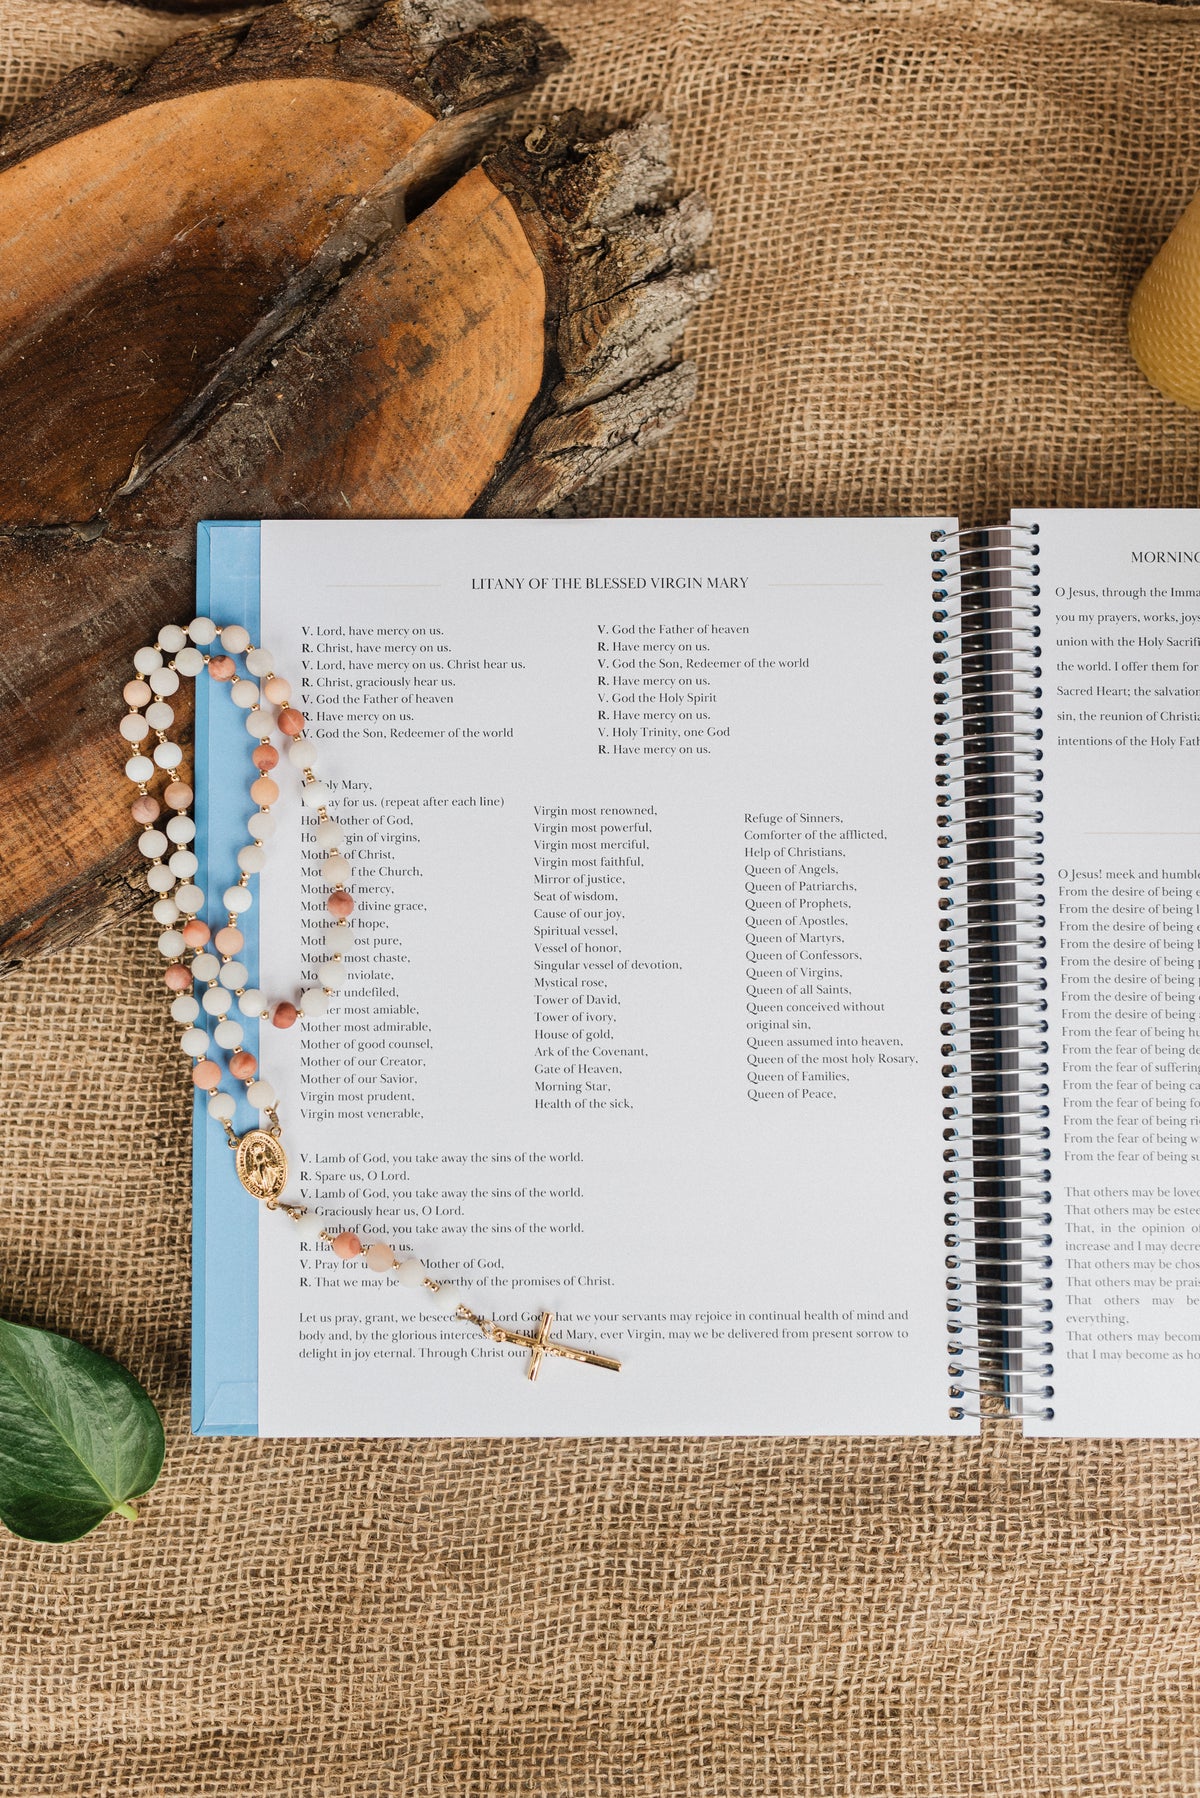 LITANY OF THE BLESSED VIRGIN MARY
V. Lord, have mercy on us.
R. Christ, have mercy on us.
V. Lord, have mercy on us. Christ hear us.
R. Christ, graciously hear us.
V. God the Father of heaven
R. Have mercy on us.
V. God the Son, Redeemer of the world
V. God the Father of heaven
R. Have mercy on us.
V. God the Son, Redeemer of the world
R. Have mercy on us.
V. God the Holy Spirit
R. Have mercy on us.
V. Holy Trinity, one God
R. Have mercy on us.
V. Holy Mary,
for us. (repeat after each line)
Holy Mother of God,
of virgins,
Mother of Christ,
of the Church,
Mother of mercy,
divine grace,
Mother of hope,
pure,
Mother most chaste,
undefiled,
most amiable,
Mother most admirable,
Mother of good counsel,
Mother of our Creator,
Mother of our Savior,
Virgin most prudent,
Virgin most venerable,
Virgin most renowned,
Virgin most powerful,
Virgin most merciful,
Virgin most faithful,
Mirror of justice,
Seat of wisdom,
Cause of our joy,
Spiritual vessel,
Vessel of honor,
Singular vessel of devotion,
Mystical rose,
Tower of David,
Tower of ivory,
House of gold,
Ark of the Covenant,
Gate of Heaven,
Morning Star,
Health of the sick,
Refuge of Sinners,
Comforter of the afflicted,
Help of Christians,
Queen of Angels,
Queen of Patriarchs,
Queen of Prophets,
Queen of Apostles,
Queen of Martyrs,
Queen of Confessors,
Queen of Virgins,
Queen of all Saints,
Queen conceived without
original sin,
Queen assumed into heaven,
Queen of the most holy Rosary,
Queen of Families,
Queen of Peace,
V. Lamb of God, you take away the sins of the world.
R. Spare us, O Lord.
V. Lamb of God, you take away the sins of the world.
R. Graciously hear us, O Lord.
Lamb of God, you take away the sins of the world.
R. on us.
V. Pray for Mother of God,
R. That we may be worthy of the promises of Christ.
Let us pray, grant, we beseech Lord God, that we your servants may rejoice in continual health of mind and
body and, by the glorious intercession of Blessed Mary, ever Virgin, may we be delivered from present sorrow to
delight in joy eternal. Through Christ our
MORNING
O Jesus, through the
you my prayers, works, joys
union with the Holy
the world. I offer them for
Sacred Heart; the
sin, the reunion of
intentions of the Holy
O Jesus! meek and humble
From the desire of being
From the desire of being
From the desire of being
From the desire of being
From the desire of being
From the desire of being
From the desire of being
From the desire of being
From the fear of being
From the fear of being
From the fear of suffering
From the fear of being
From the fear of being
From the fear of being
From the fear of being
From the fear of being
That others may be loved
That others may be
That, in the opinion of
increase and I may
That others may be
That others may be
That others may be
everything,
That others may
that I may become as